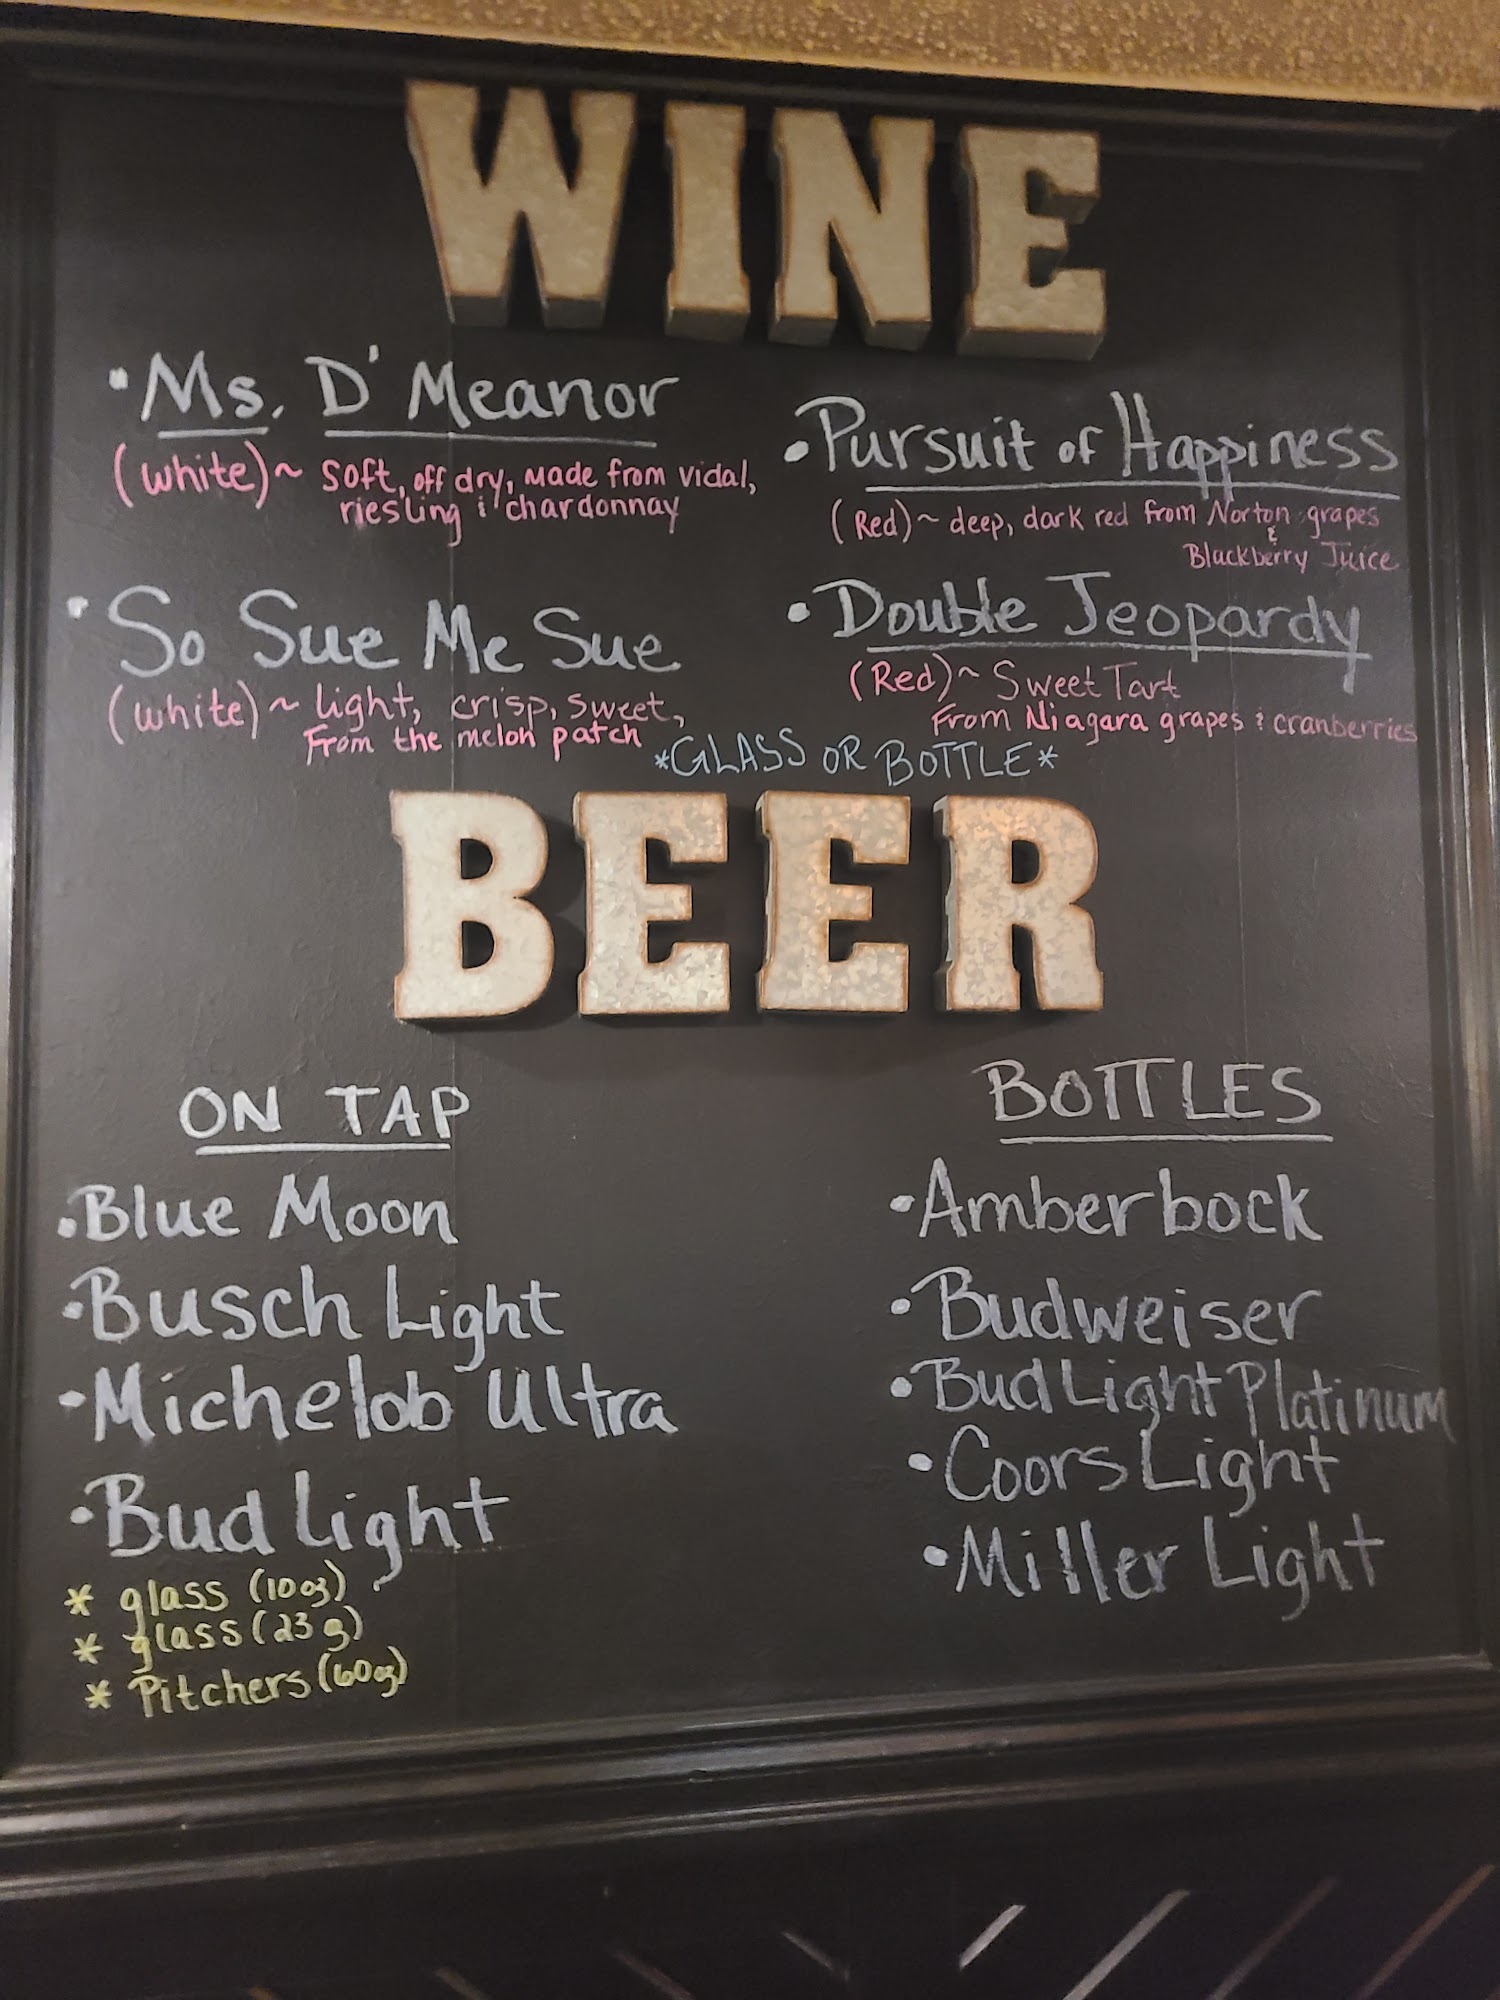 WINE
• Ms. D'Meanor
(white) ~ soft, off dry, made from vidal,
riesling & chardonnay
• So Sue Me Sue
(white) ~ light, crisp, sweet,
From the melon patch
• Pursuit of Happiness
(Red) ~ deep, dark red from Norton grapes
&
Blackberry Juice
• Double Jeopardy
(Red) ~ Sweet Tart
From Niagara grapes & cranberries
*GLASS OR BOTTLE*
BEER
ON TAP
• Blue Moon
• Busch Light
• Michelob Ultra
• Bud Light
* glass (10oz)
* glass (23 oz)
* Pitchers (60oz)
BOTTLES
• Amberbock
• Budweiser
• Bud Light Platinum
• Coors Light
• Miller Light